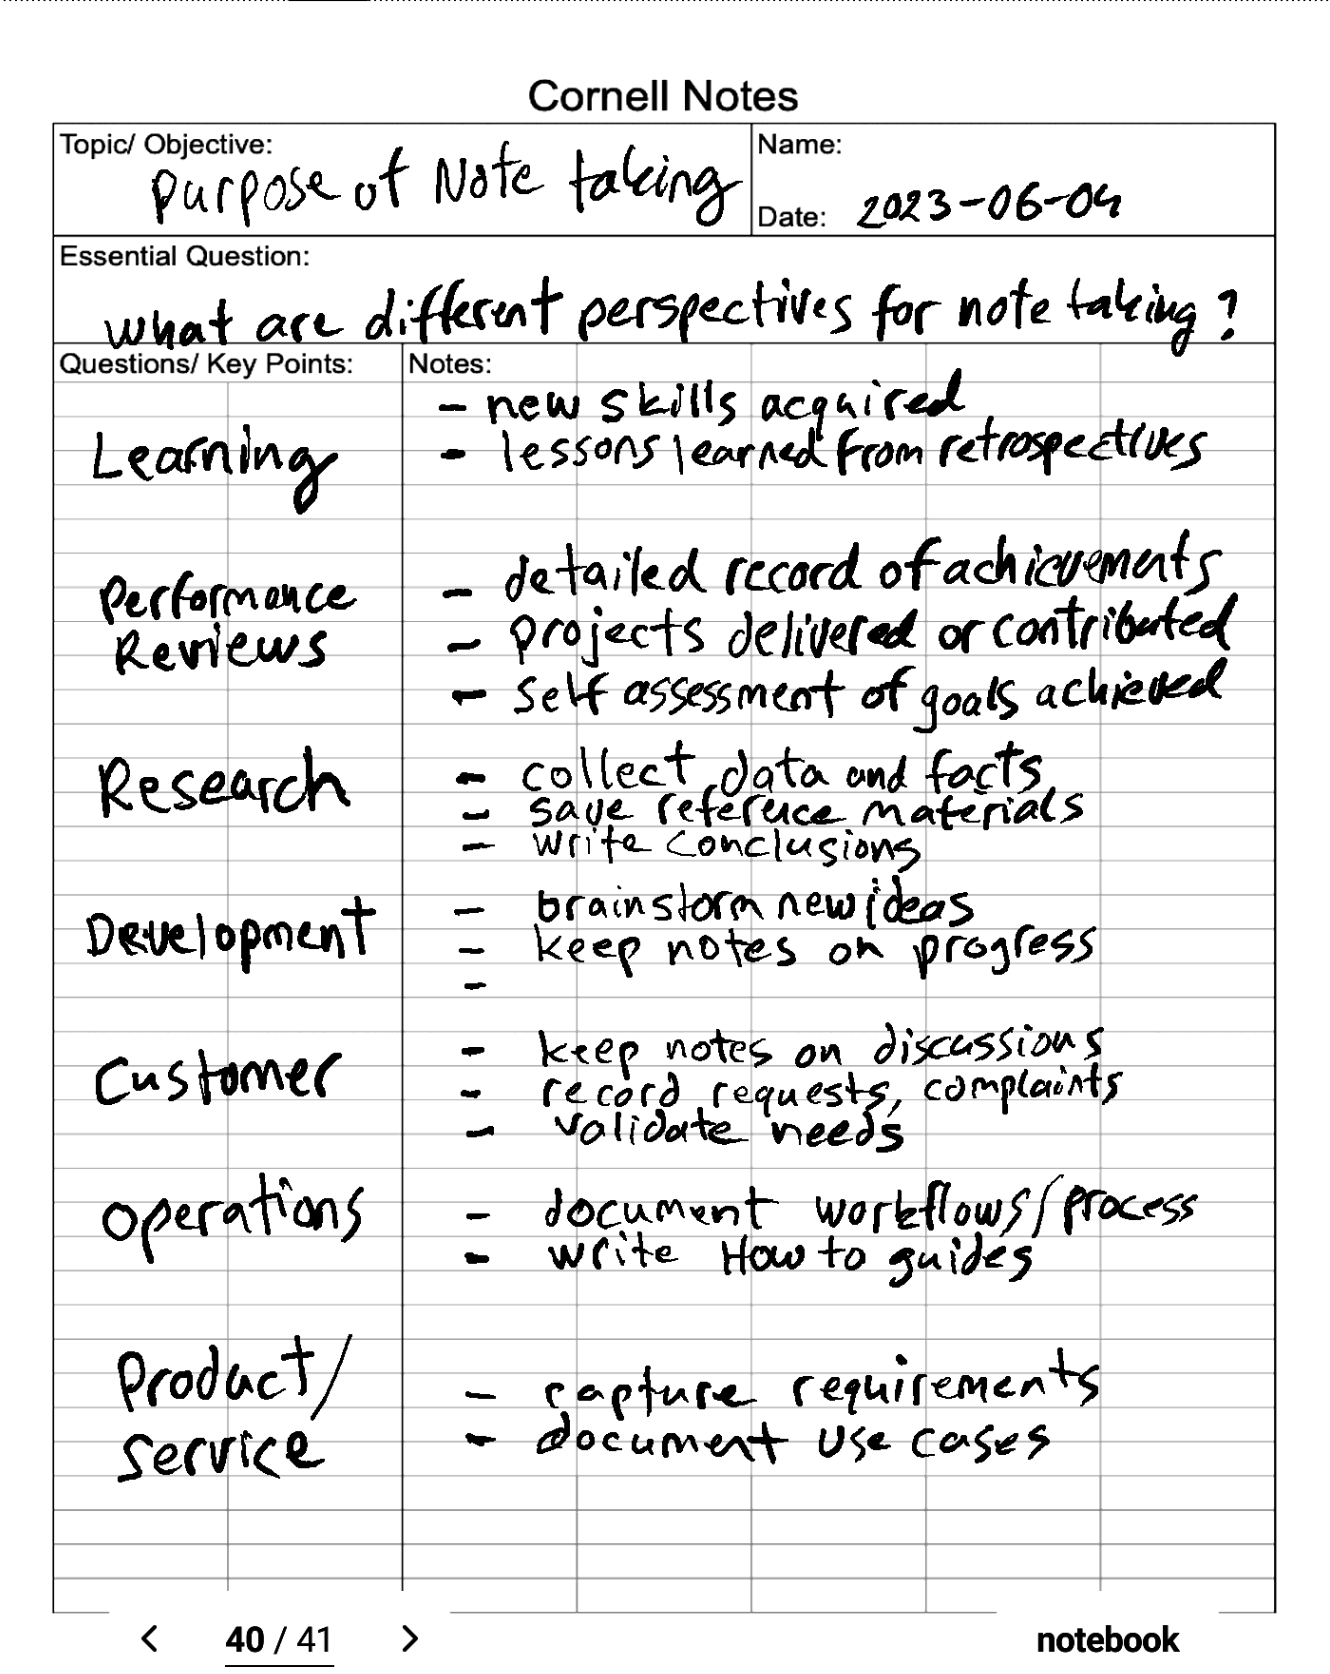 Cornell Notes
Topic/ Objective:
Purpose of Note taking
Name:
Date: 2023-06-04
Essential Question:
what are different perspectives for note taking?
Questions/ Key Points:
Notes:
Learning
- new skills acquired
- lessons learned from retrospectives
Performance
Reviews
- detailed record of achievements
- projects delivered or contributed
- Self assessment of goals achieved
Research
- collect data and facts
- save reference materials
- write conclusions
Development
- brainstorm new ideas
- keep notes on progress
-
Customer
- keep notes on discussions
- record requests, complaints
- validate needs
operations
- document workflows/process
- write How to guides
Product/
Service
- capture requirements
- document use cases
< 40 / 41 >
notebook